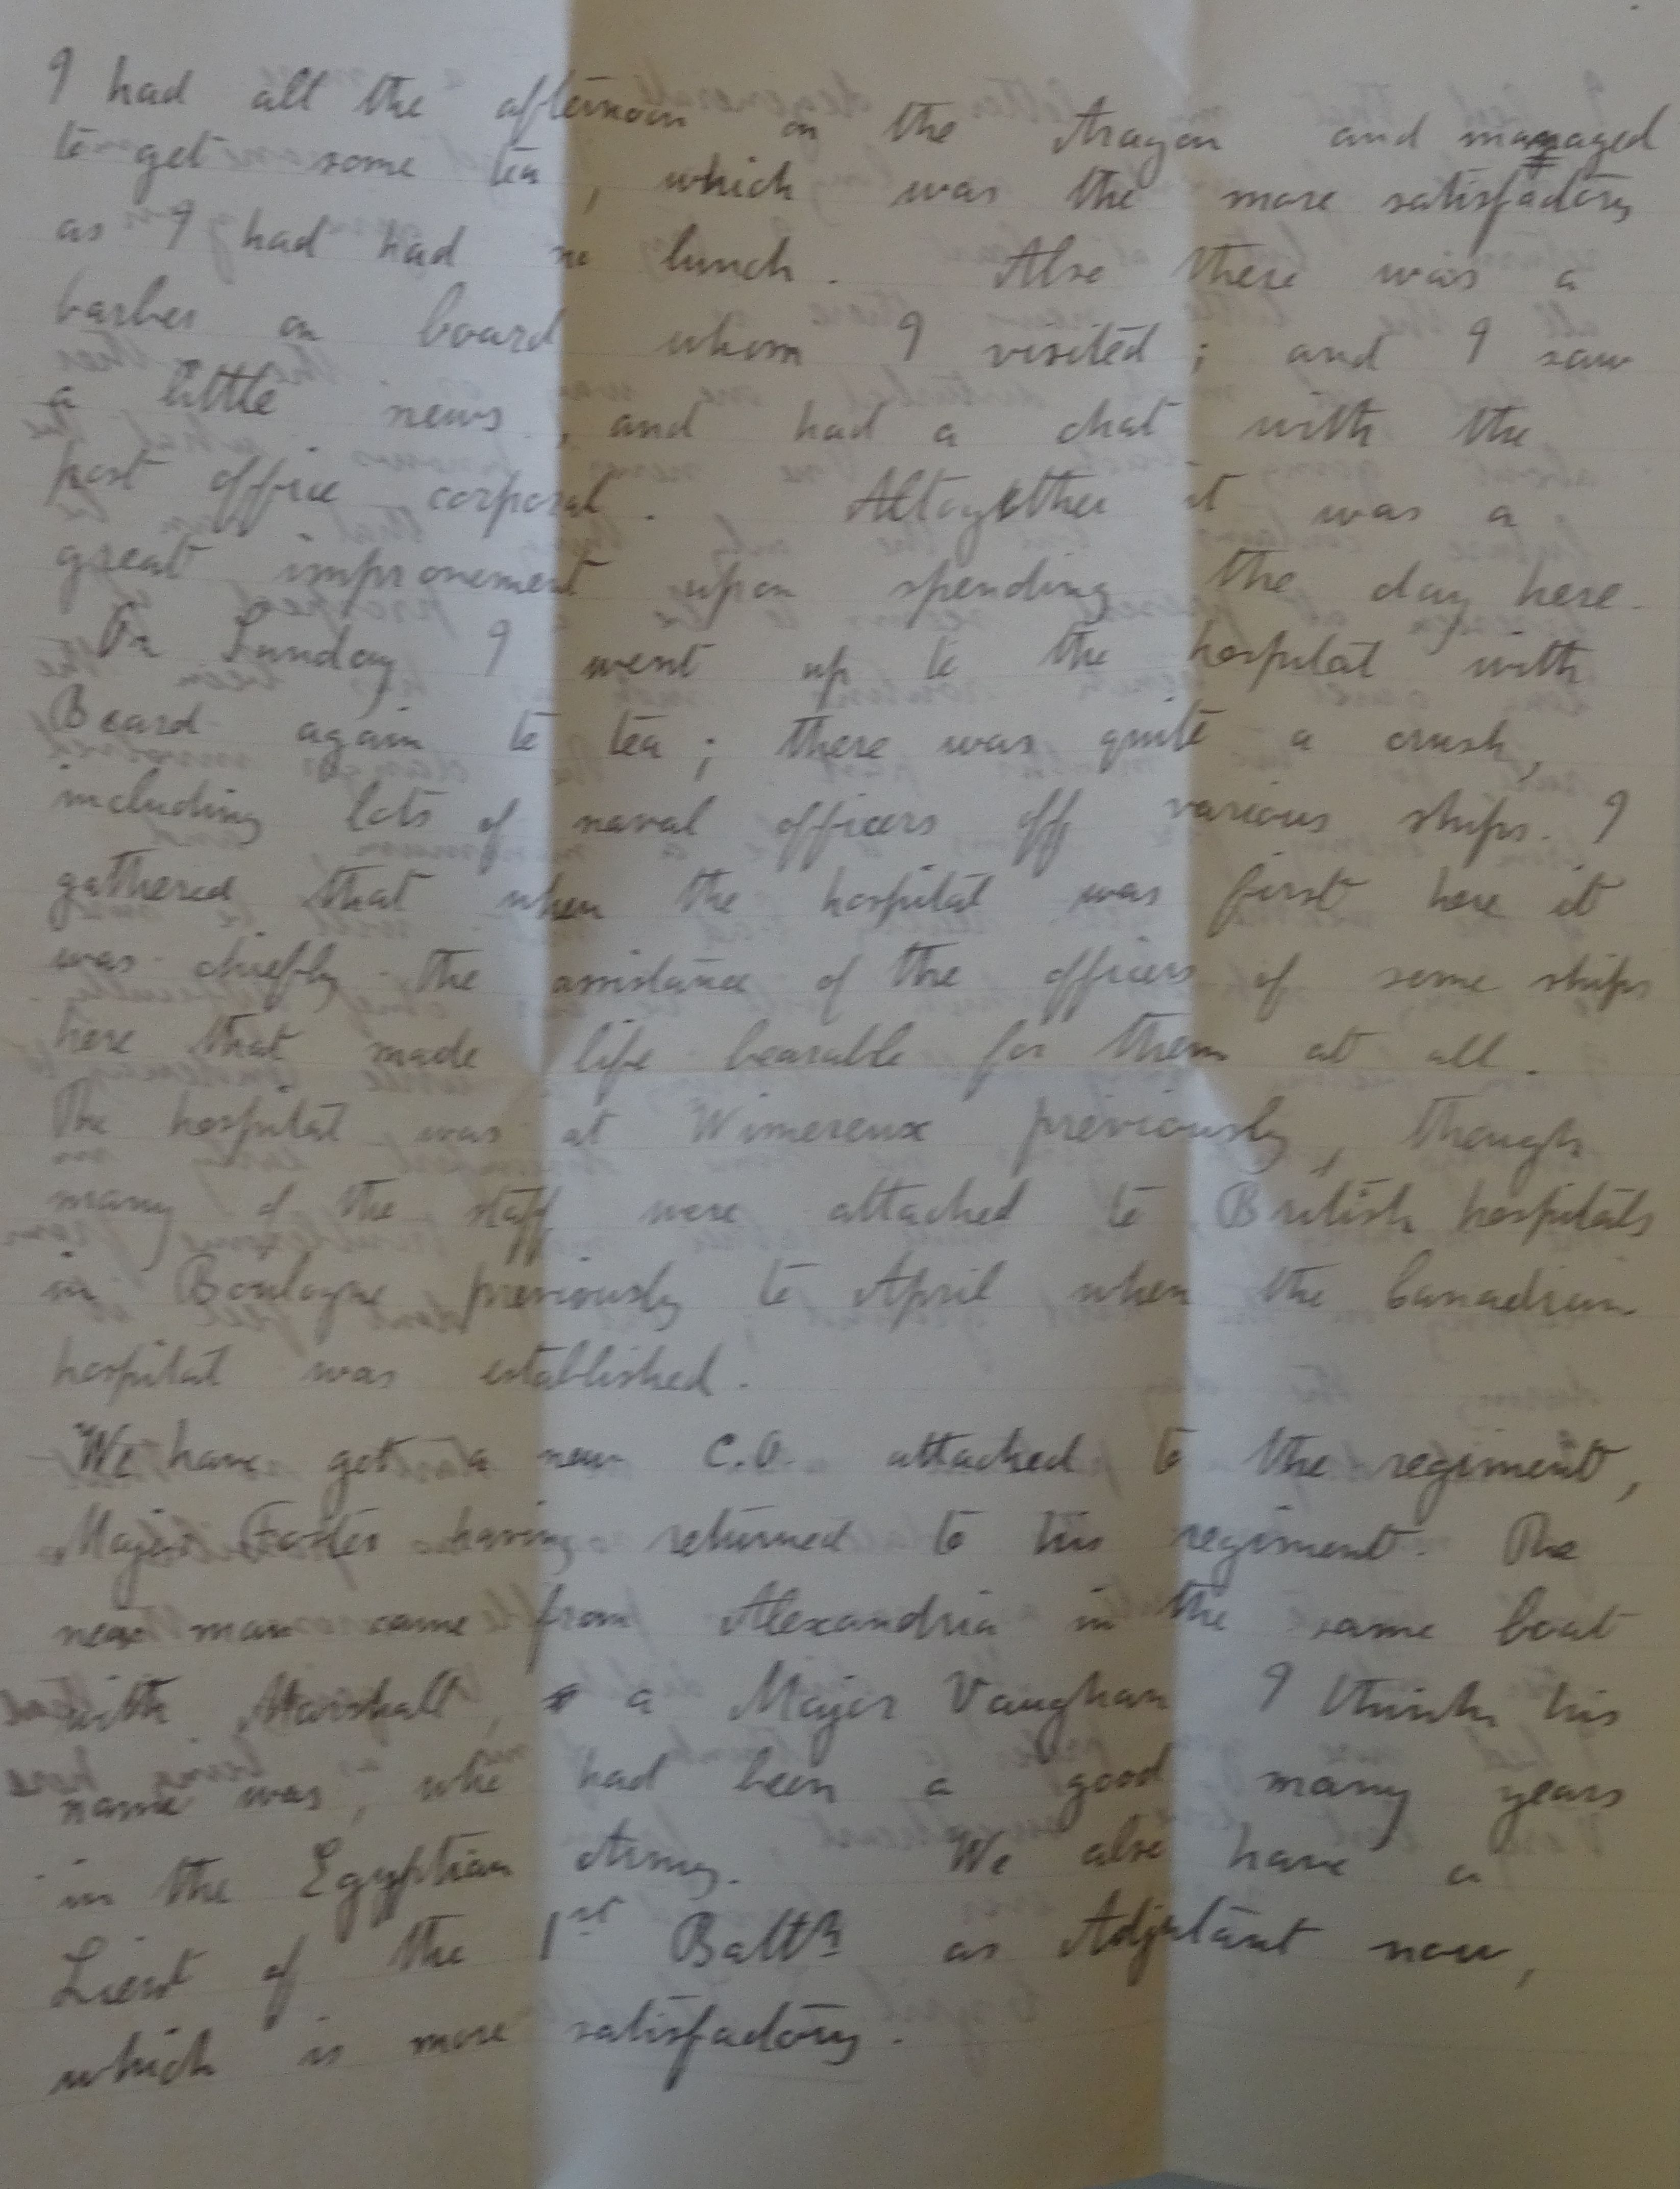 I had all the afternoon on the Aragon and managed
to get some tea, which was the more satisfactory
as I had had no lunch. Also there was a
barber on board whom I visited; and I saw
a little news, and had a chat with the
post office corporal. Altogether it was a
great improvement upon spending the day here.
On Sunday I went up to the hospital with
Beard again to tea; there was quite a crush,
including lots of naval officers off various ships. I
gathered that when the hospital was first here it
was chiefly the assistance of the officers of some ships
here that made life bearable for them at all.
The hospital was at Wimereux previously, though
many of the staff were attached to British hospitals
in Boulogne previously to April when the Canadian
hospital was established.
We have got a new C.O. attached to the regiment,
Major Foster having returned to his regiment. The
new man came from Alexandria in the same boat
with Marshall, a Major Vaughan I think his
name was, who had been a good many years
in the Egyptian Army. We also have a
Lieut of the 1st Battn as Adjutant now,
which is more satisfactory.